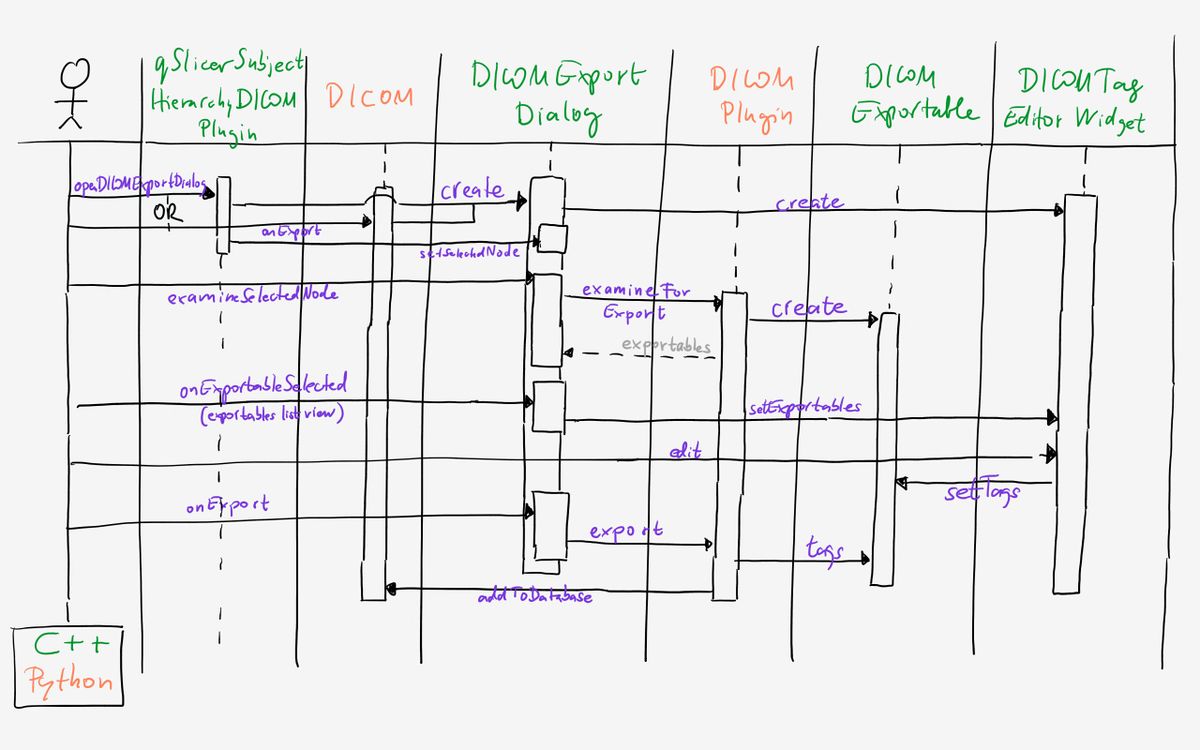 qSlicerSubject
HierarchyDICOM
Plugin
DICOM
DICOMExport
Dialog
DICOM
Plugin
DICOM
Exportable
DICOMTag
Editor Widget
openDICOMExportDialog
OR
onExport
create
create
setSelectedNode
examineSelectedNode
examineFor
Export
create
exportables
onExportableSelected
(exportables list view)
setExportables
edit
setTags
onExport
export
tags
addToDatabase
C++
Python